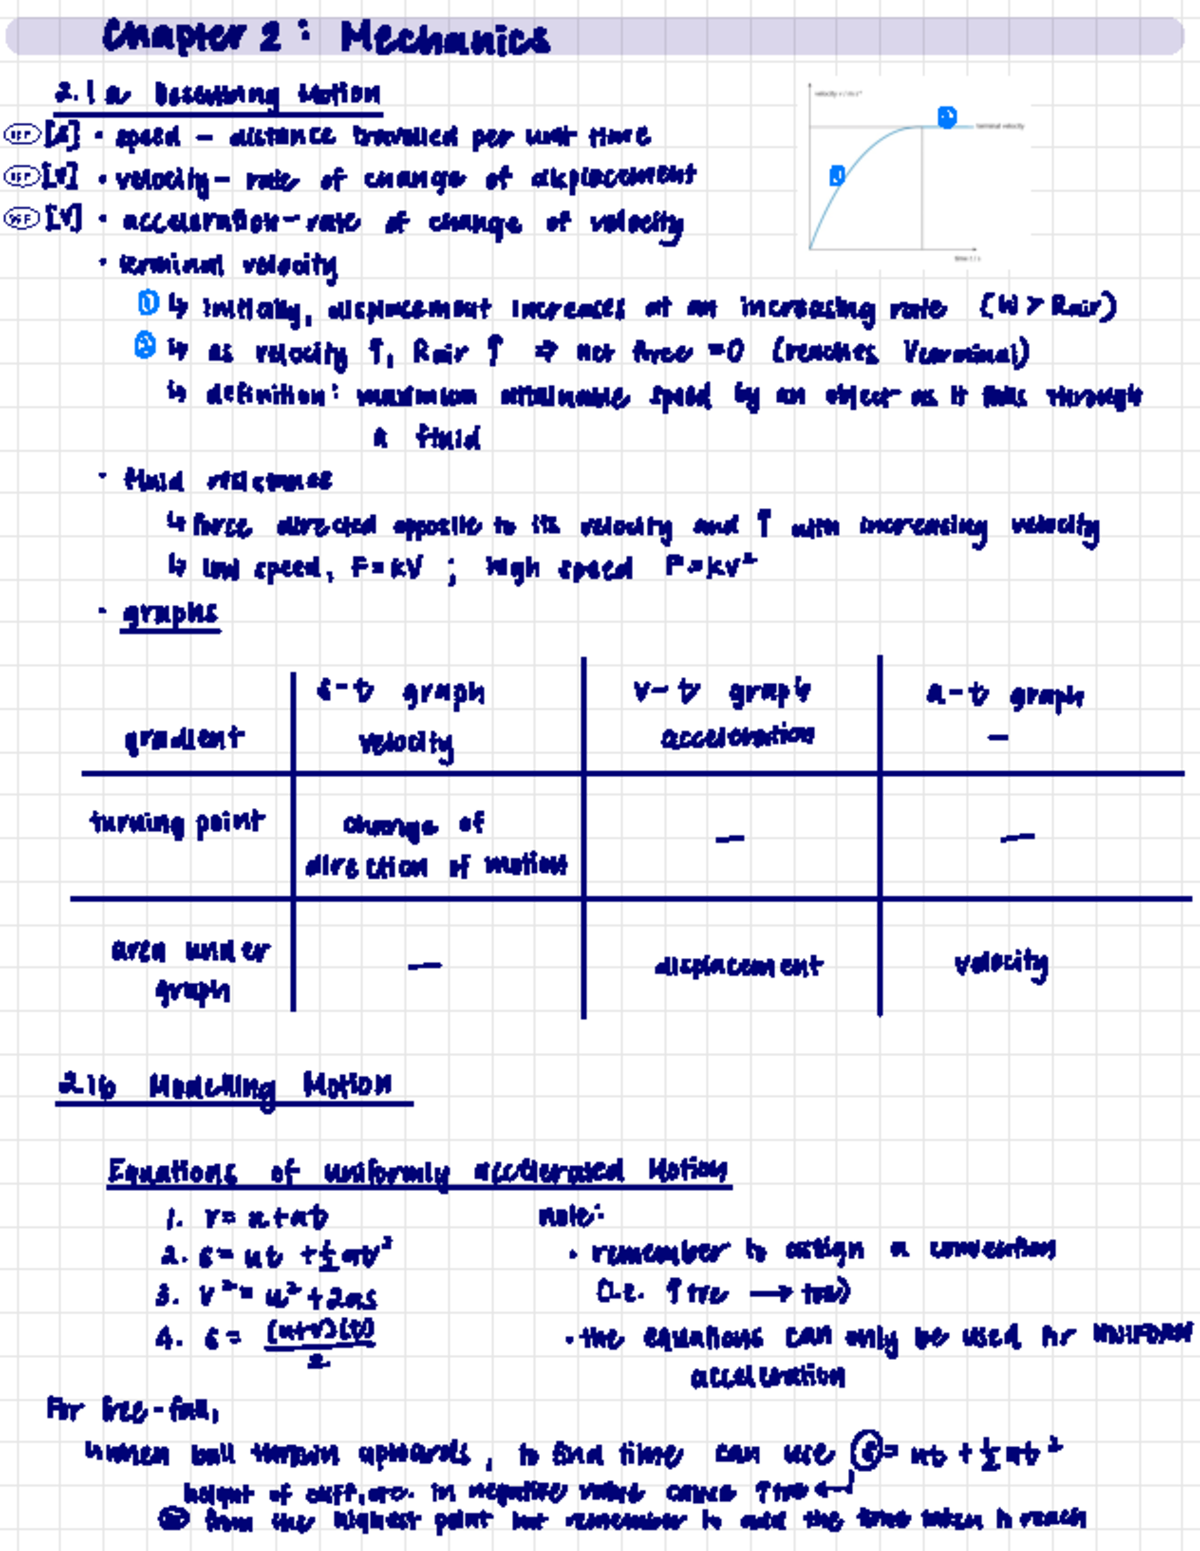 Chapter 2 : Mechanics
2.1a Describing Motion
velocity v / m s⁻¹
terminal velocity
time t / s
① ②
DEF [S] • speed – distance travelled per unit time
DEF [V] • velocity – rate of change of displacement
DEF [V] • acceleration – rate of change of velocity
• terminal velocity
① ↳ initially, displacement increases at an increasing rate (W > Rair)
② ↳ as velocity ↑, Rair ↑ ⇒ net force = 0 (reaches Vterminal)
↳ definition: maximum attainable speed by an object as it falls through
a fluid
• fluid resistance
↳ force directed opposite to its velocity and ↑ with increasing velocity
↳ low speed, F = kV ; high speed F = kv²
• graphs
s-t graph v-t graph a-t graph
gradient velocity acceleration —
turning point change of — —
direction of motion
area under — displacement velocity
graph
2.1b Modelling Motion
Equations of uniformly accelerated Motion
1. v = u + at note:
2. s = ut + ½at² • remember to assign a convention
3. v² = u² + 2as (i.e. ↑ +ve → +ve)
4. s = (u+v)(t) / 2 • the equations can only be used for UNIFORM
acceleration
For free-fall,
when ball thrown upwards, to find time can use s = ut + ½at²
height of cliff, etc. in negative value cause ↑ +ve ↵
from the highest point but remember to add the time taken to reach